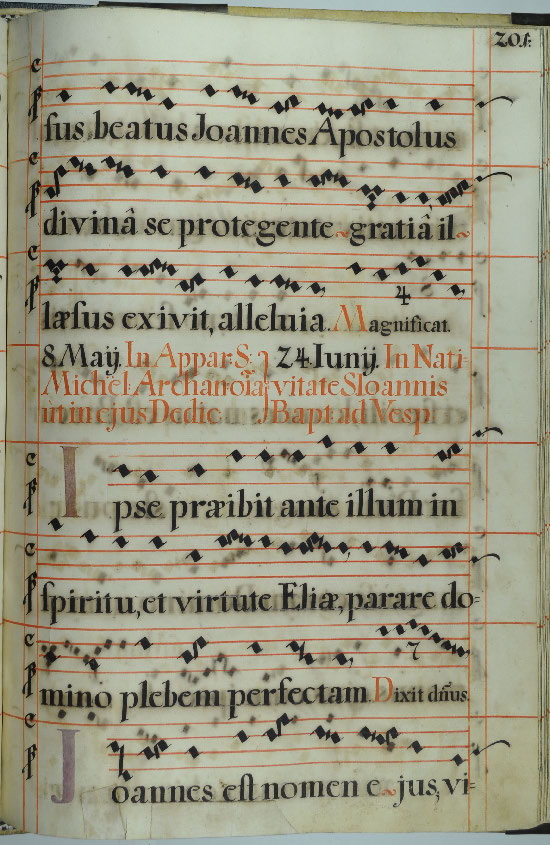 201.
sus, beatus Joannes Apostolus
divinâ se protegente gratiâ il-
4
læsus exivit, alleluia. Magnificat.
8 Maÿ. In Appar. S. 24 Iunij. In Nati-
Michel. Archang. vitate S Ioannis
ut in ejus Dedic. Bapt. ad Vesp.
Ipse præibit ante illum in
spiritu, et virtute Eliæ, parare do-
7
mino plebem perfectam. Dixit dñus.
Joannes est nomen ejus, vi-